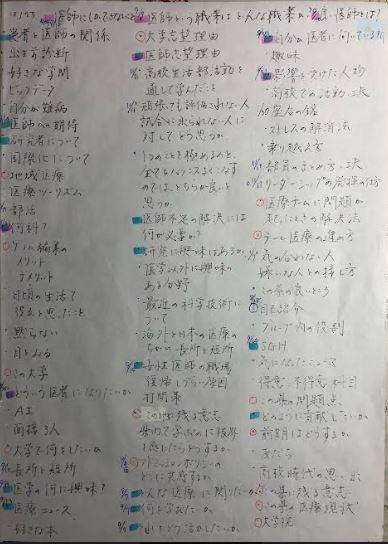 患者と医師の関係
出生前診断
好きな学問
ビッグデータ
自分が難病
医師への期待
研究者について
国際化について
地域医療
医療ツーリズム
部活
何科?
ゲノム編集の
メリット
デメリット
日頃の生活で
黙らない
この大学
どういう医者になりたいか
AI
面接3人
大学で何をしたいか
長所と短所
医学の何に興味?
医療ニュース
好きな本
医師という職業はどんな職業か
大学志望理由
医師志望理由
高校生活部活動を
通して学んだこと
頑張っても評価されない人
試合に出られない人に
対してどう思うか
1つのことを極めるのと、
全てをバランスよくこなす
のではどちらが良いと
思うか
医師不足の解決には
何が必要か?
研究に興味はあるか
医学以外に興味の
ある分野
最近の科学技術に
ついて
海外と日本の医療の
ちがい 長所と短所
女性医師の職場
復帰しづらい原因
打開策
この県に残る意志
アドミッションポリシーの
どんな医療に関わりたいか
何を学びたいか
自分が医者に向いている所
趣味
影響を受けた人物
高校での活動、工夫
座右の銘
ストレスの解消法
乗り越え方
部員のまとめ方、工夫
リーダーシップの発揮の仕方
医療チームに問題が
起こたときの解決法
チーム医療の進め方
気の合わない人
嫌いな人との接し方
この県の良いところ
自己紹介
グループ内の役割
SGH
気になったニュース
得意、不得意科目
この県の問題点
どのように貢献したいか
前期はどうするか
友だち
高校時代の思い出
この県に残る意志
この県の医療現状
大学院